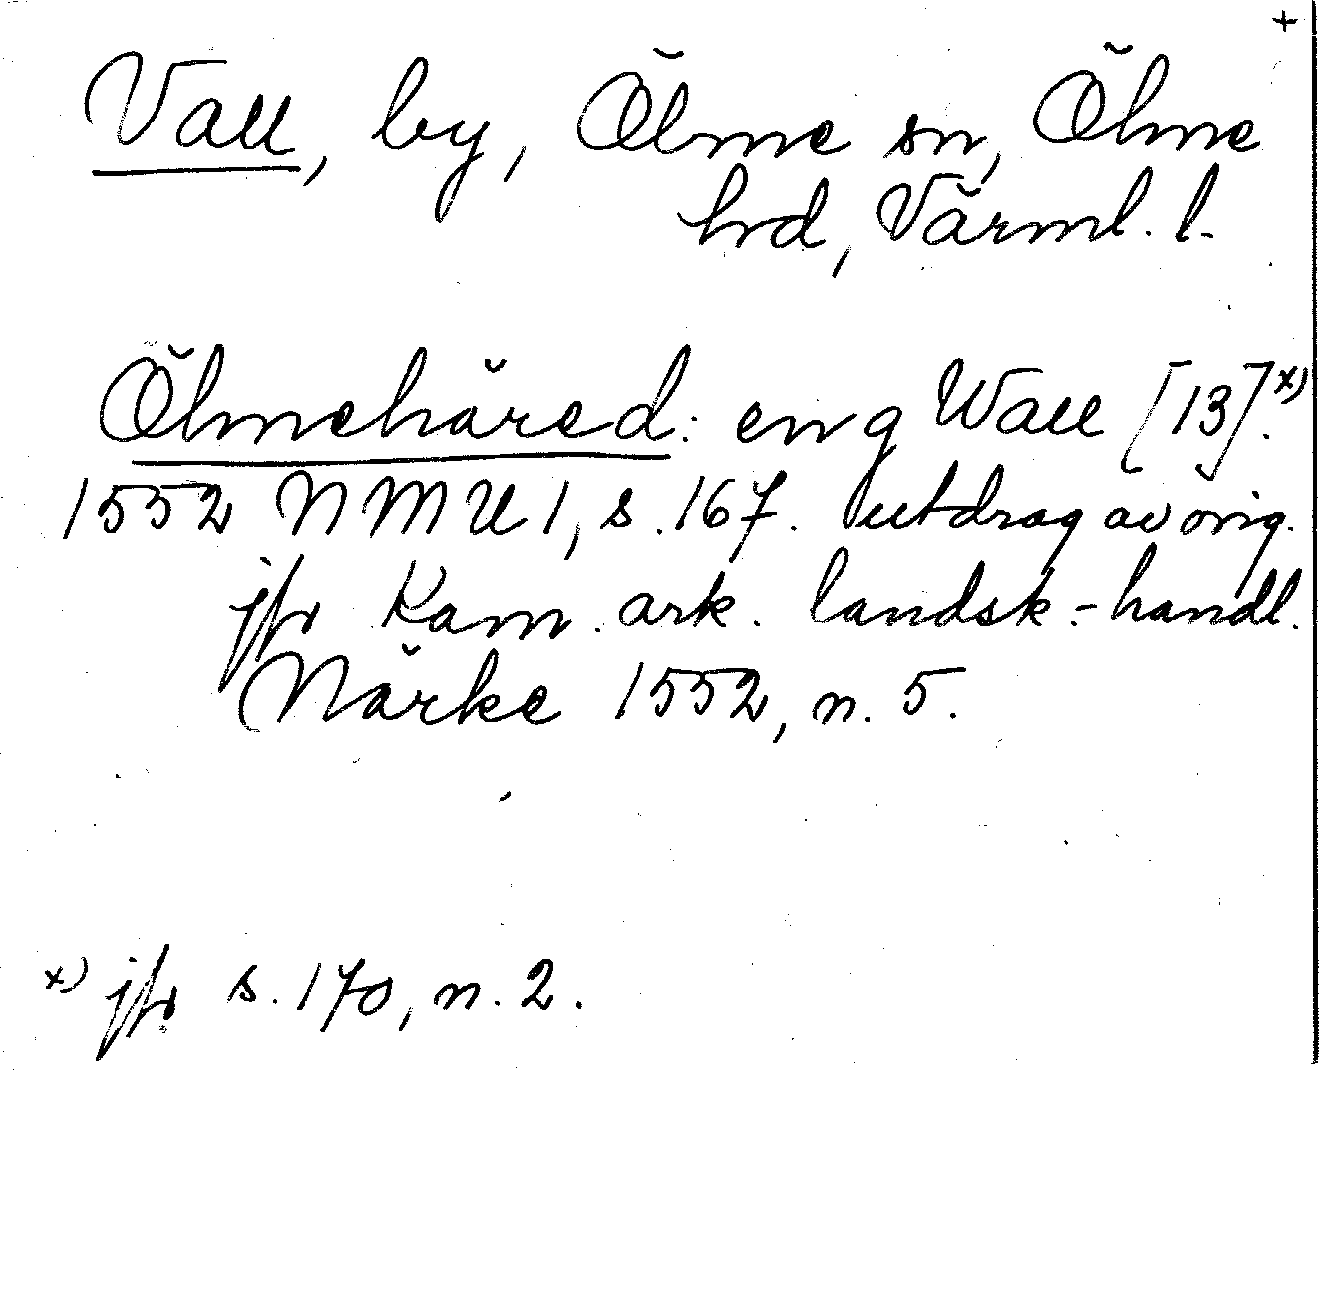 +
Vall, by, Ölme sn, Ölme
hd, Värml. l.
Ölmehäred: en g Wall [13].x)
1552 NMU 1, s. 167. utdrag av orig.
jfr Kam. ark. landsk.-handl.
Närke 1552, n. 5.
x) jfr s. 170, n. 2.